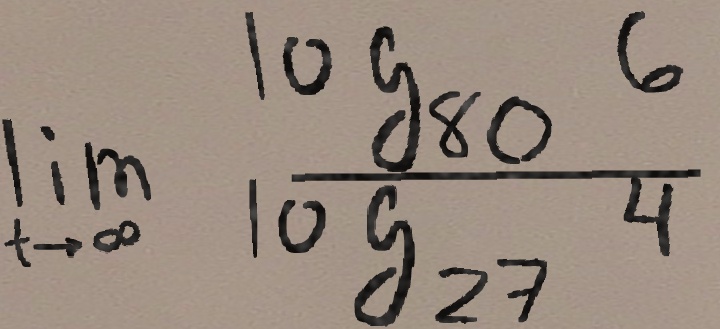 \lim_{t \to \infty} \frac{\log_{80} 6}{\log_{27} 4}